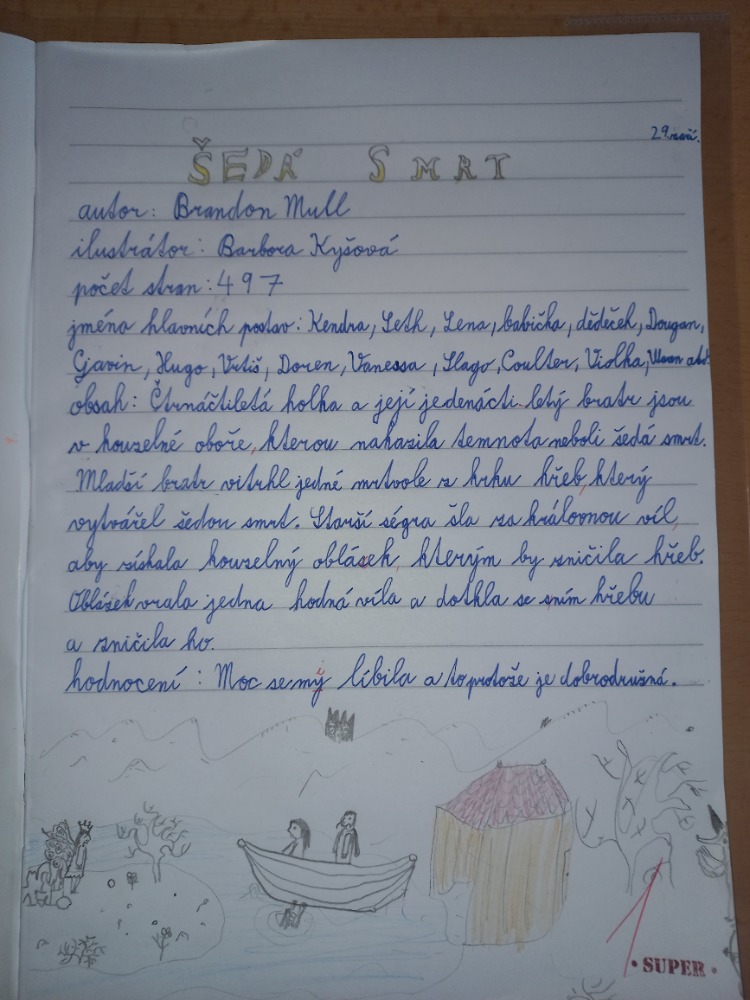 29. září.
ŠEDÁ SMRT
autor: Brandon Mull
ilustrátor: Barbora Kyšová
počet stran: 497
jména hlavních postav: Kendra, Seth, Lena, babička, dědeček, Dougan,
Gavin, Hugo, Vrtiš, Doren, Vanessa, Slago, Coulter, Violka, atd.
obsah: Čtrnáctiletá holka a její jedenácti letý bratr jsou
v kouzelné oboře, kterou nakazila temnota neboli šedá smrt.
Mladší bratr vitrhl jedné mrtvole z krku hřeb, který
vytvářel šedou smrt. Starší ségra šla za královnou víl,
aby získala kouzelný oblásek, kterým by zničila hřeb.
Oblásek vzala jedna hodná víla a dotkla se sním hřebu
a zničila ho.
hodnocení: Moc se mi líbila a to protože je dobrodružná.
1
• SUPER •